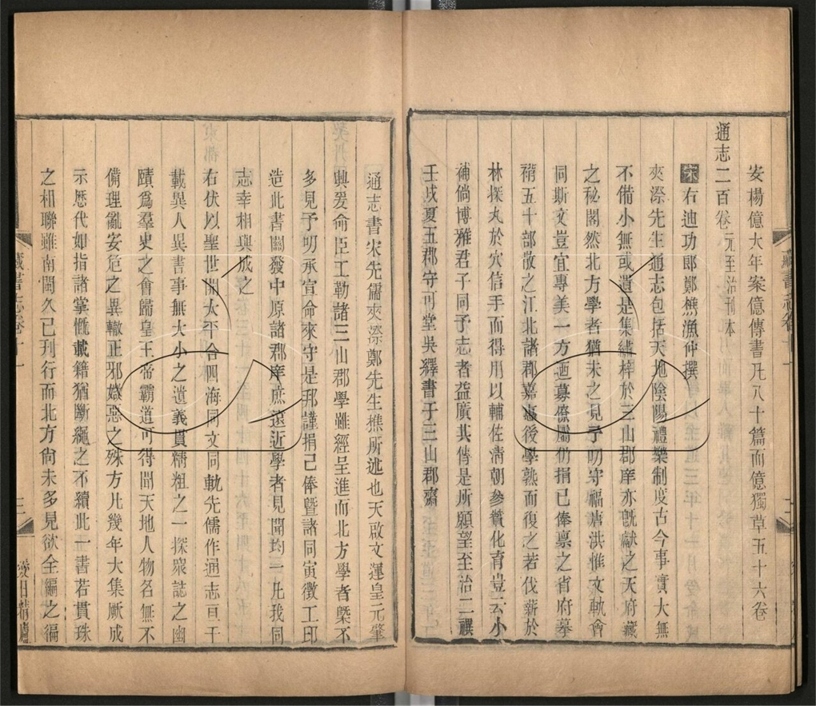 安楊億大年案億傳書凡八十篇而億獨草五十六卷
通志二百卷元至治刊本
宋右迪功郎鄭樵漁仲撰
夾漈先生通志包括天地陰陽禮樂制度古今事實大無
不備小無或遺是集繡梓於三山郡庠亦旣獻之天府藏
之秘閣然北方學者猶未之見予叨守福唐洪惟文軌會
同斯文豈宜專美一方迺募僚屬仍捐己俸稟之省府摹
褙五十部散之江北諸郡嘉惠後學熟而復之若伐薪於
林探丸於穴信手而得用以輔佐清朝參贊化育豈云小
補倘博雅君子同予志者益廣其偕是所願望至治二禩
壬戌夏五郡守可堂吳繹書于三山郡齋
通志書宋先儒夾漈鄭先生樵所述也天啟文運皇元肇
興爰命臣工勒諸三山郡學雖經呈進而北方學者槩不
多見予叨承宣命來守是邦謹捐己俸曁諸同寅徵工印
造此書關發中原諸郡庠庶遠近學者見聞均一凡我同
志幸相與成之
右伏以聖世開太平合四海同文同軌先儒作通志亘千
載異人異書事無大小之遺義貫精粗之一探衆誌之幽
蹟爲羣史之會歸皇王帝霸道可得聞天地人物名無不
備理亂安危之異轍正邪媺惡之殊方凡幾年大集厥成
示歷代如指諸掌慨載籍猶斷繩之不續此一書若貫珠
之相聯雖南閩久已刊行而北方尙未多見欲全編之徧
藏書志卷十一